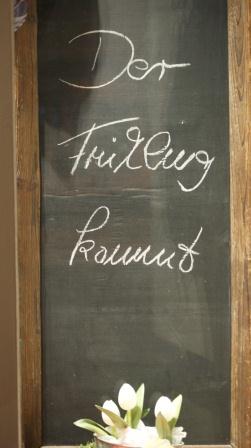 Der
Frühling
kommt